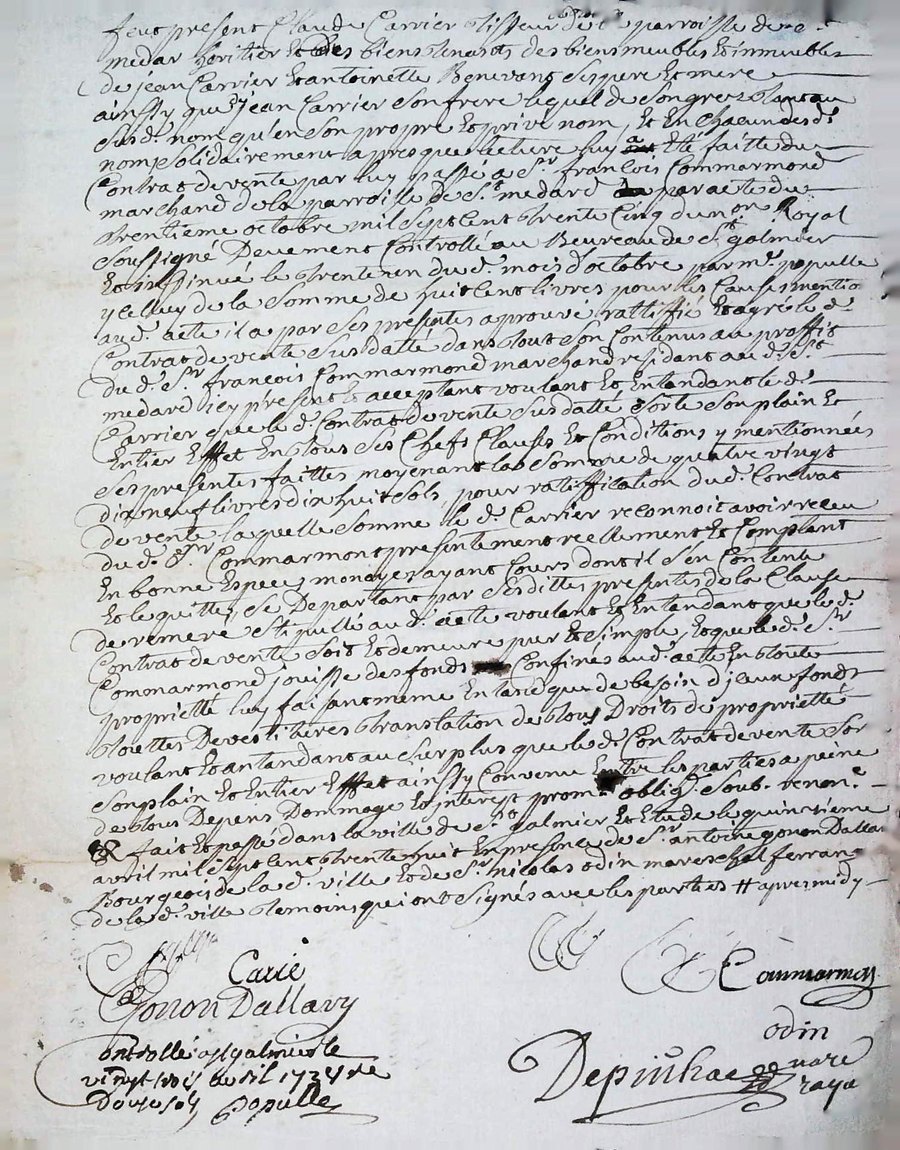 feut present Claude Carrier tisseur de la parroisse de st
medar heritier et des biens tenants des biens meubles et immeubles
de jean Carrier et antoinette Benevang ses pere et mere
ainssy que jean Carrier son frere lequel de son gres tant au
susd. nom qu'en son propre et privé nom, et En chacun desd.
noms solidairement apres que lecture luy a eté faitte du
Contrat de vente par luy passé a Sr. françois Commarmond
marchand de la parroisse de St. medard par acte du
trentieme octobre mil sept Cent trente Cinq du nore Royal
soussigné Deuement Controllé au Beureau de St. galmier
Et inssinué le trente un dud. mois d'octobre par me. populle
yceluy de la somme de huit Cent livres pour les Causes mention
aud. acte il a par ses presentes aprouvé rattiffié et agréé le d.
Contrat de vente susdatté dans tout son Contenus au proffit
du d. Sr. françois Commarmond marchand residant aud. St.
medard icy present et acceptant voulant et Entandant le d.
Carrier que le d. Contrat de vente susdatté sorte son plain et
Entier Effet En tous ses Chefs Clauses et Conditions y mentionnées
ses presentes faittes moyenant la somme de quatre vingt
dix neuf livres dix huit sols, pour ratiffication dud. Contrat
de vente laquelle somme le d. Carrier reconnoit avoir receu
du d. Sr. Commarmont presentement reellement et Comptant
En bonne Especes monoye ayant Cours dont il s'en Contente
Et le quitte, se Departant par sesdittes presentes de la Clause
de remere stipullé aud. acte voulant et Entandant que le d.
Contrat de vente soit et demeure pur et simple, et que le d. Sr.
Commarmond jouisse des fonds Confinés aud. acte En toute
propriette luy faisant meme En tand que de besoin d'iceux fonds
touttes Devestitures translation de tous Droits de proprietté
voulant et antandant au surplus que le d. Contrat de vente sor
son plain et Entier Effet ainssy Convenu Entre les parties a peine
de tous Depens Dommage et interest prom. oblig. soub. renon.
fait et passé dans la ville de St. galmier et Etude le quinzieme
avril mil sept cent trente huit En presence de Sr. antoine gonon Dallavi
Bourgeois de la d. ville et de Sr. nicolas odin mareschal ferran
de la d. ville temoins qui ont signés avec les parties apres midy
Carié
Commarmon
Gonon Dallavy
odin
ontrollé a st galmier le
vingt avril 173 re
Douze sols populle
Depiuhac
nore
raya